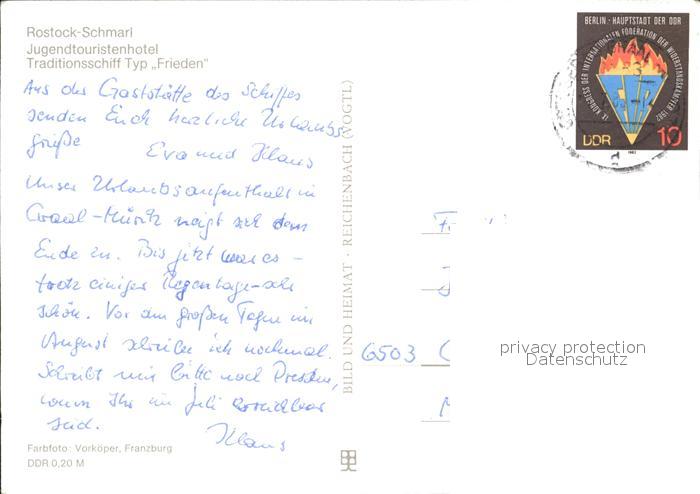 Rostock-Schmarl
Jugendtouristenhotel
Traditionsschiff Typ „Frieden"
Aus der Gaststätte des Schiffes
senden Euch herzliche Urlaubs-
grüße
Eva und Klaus
Unser Urlaubsaufenthalt in
Graal-Müritz neigt sich dem
Ende zu. Bis jetzt war es -
trotz einiger Regentage - sehr
schön. Vor den großen Tagen im
August schreibe ich nochmal.
Schreibt mir bitte nach Dresden,
wann Ihr im Juli erreichbar
seid.
Klaus
Farbfoto: Vorköper, Franzburg
DDR 0,20 M
BILD UND HEIMAT · REICHENBACH (VOGTL)
BERLIN · HAUPTSTADT DER DDR
IX. KONGRESS DER INTERNATIONALEN FÖDERATION DER WIDERSTANDSKÄMPFER 1982
FIR
DDR 10
1982
6503
privacy protection
Datenschutz